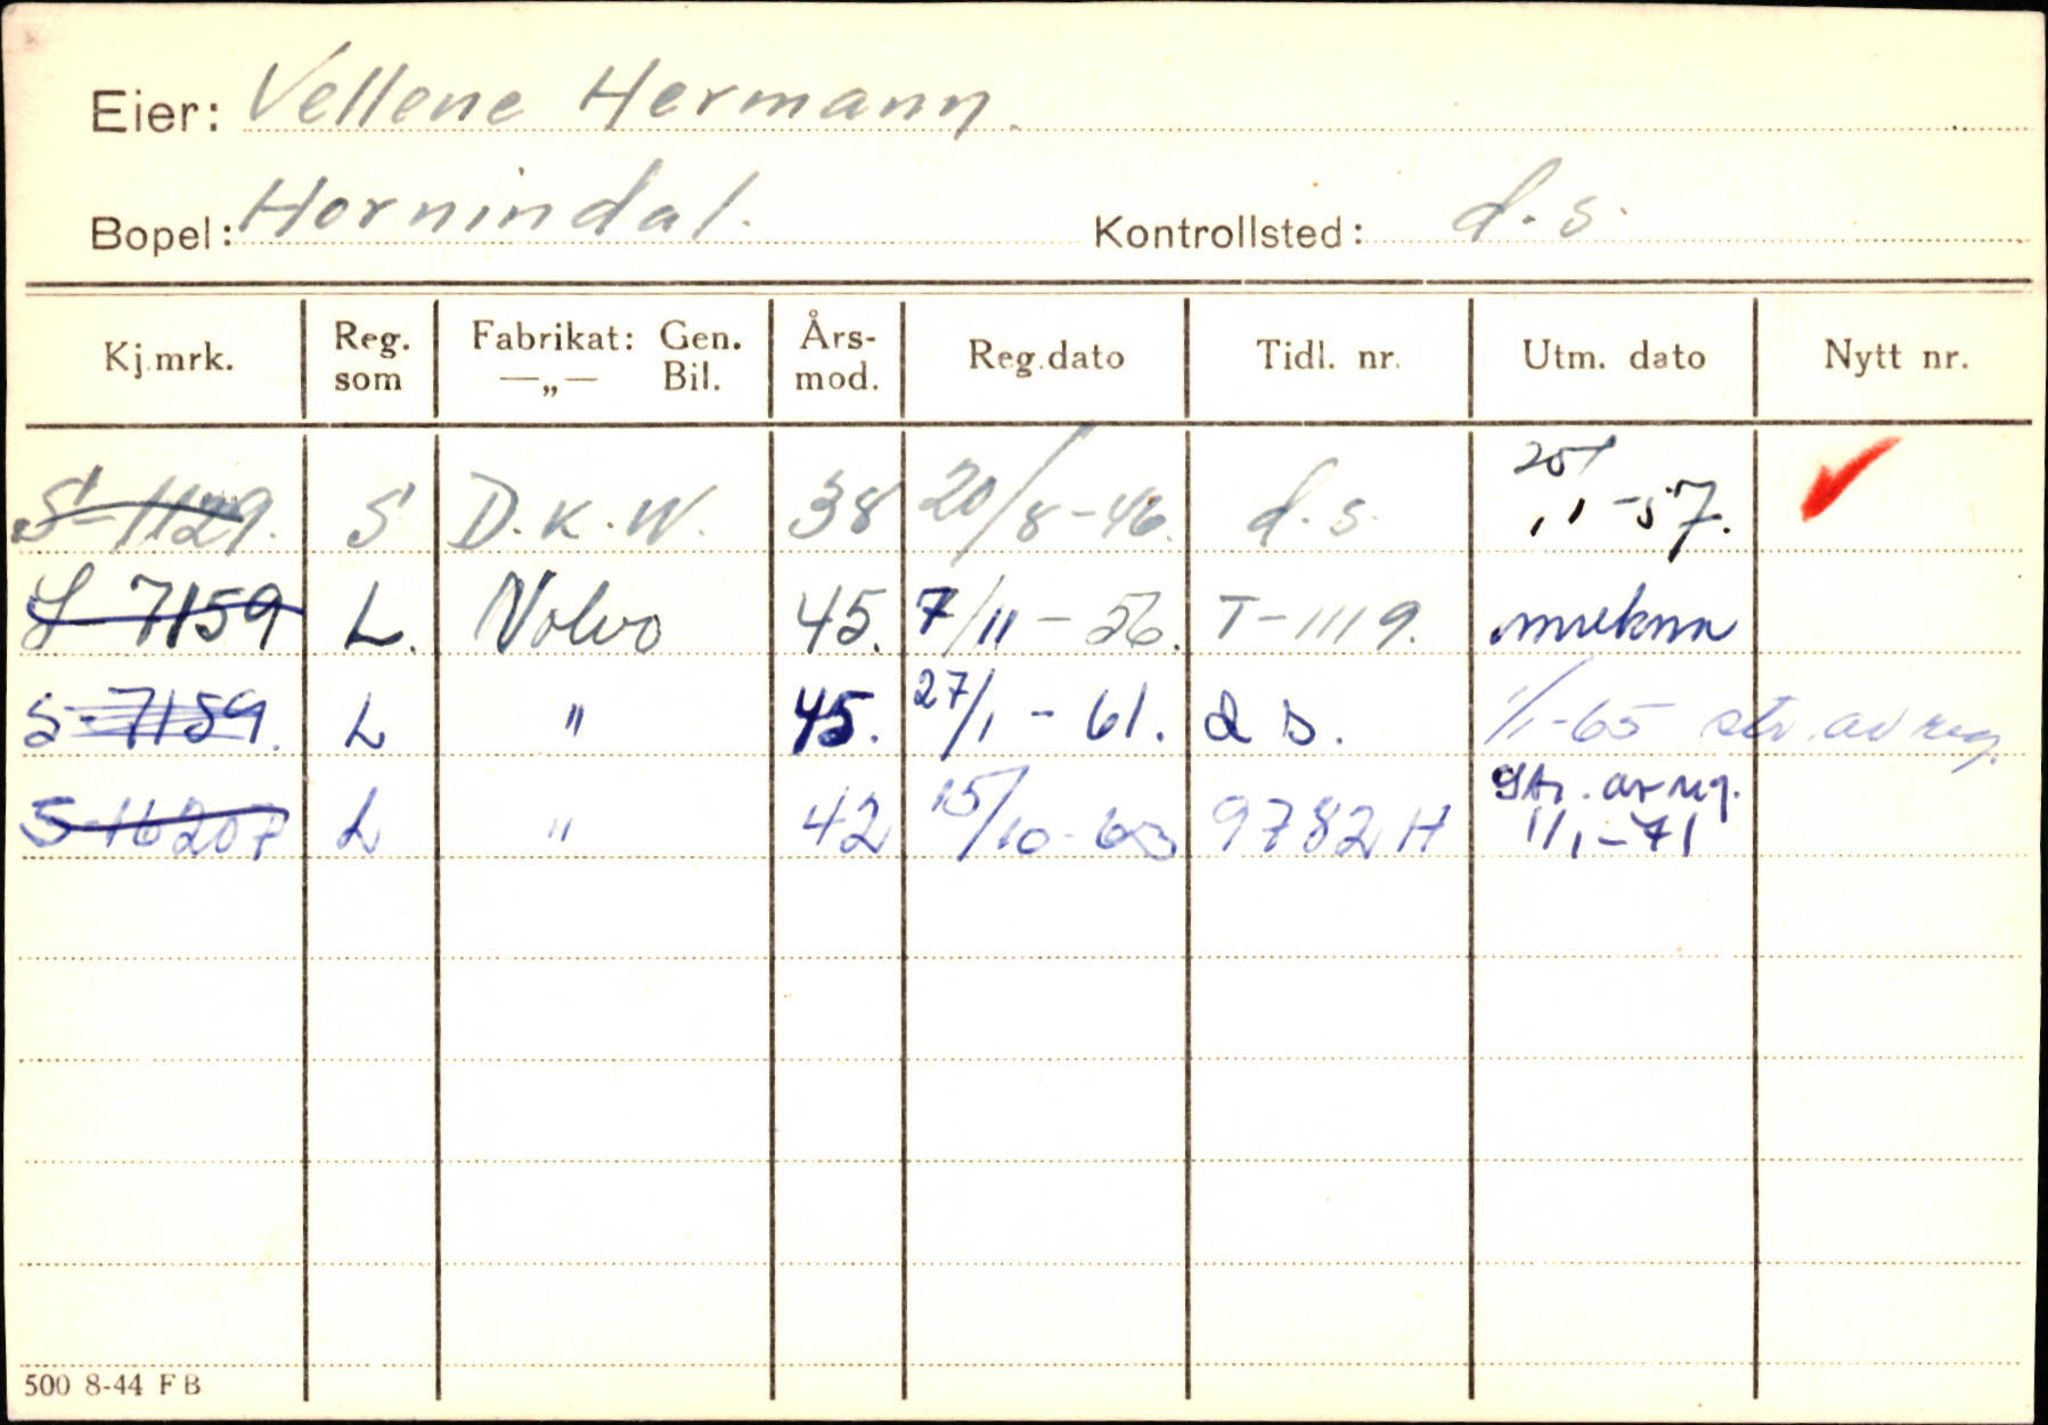 Eier: Vellene Hermann.
Bopel: Hornindal. Kontrollsted: d.s.
Kj.mrk. Reg. som Fabrikat: Gen. —„— Bil. Års-mod. Reg.dato Tidl. nr. Utm. dato Nytt nr.
S-1129. S D.K.W. 38 20/8-46. d.s. 25/1-57.
S 7159 L. Volvo 45. 7/11-56. T-1119.
S-7159. L " 45. 27/1-61. d s. 1/1-65 str. av reg.
S-16207 L " 42 15/10-63 9782 H Str. av reg. 1/1-71
500 8-44 FB